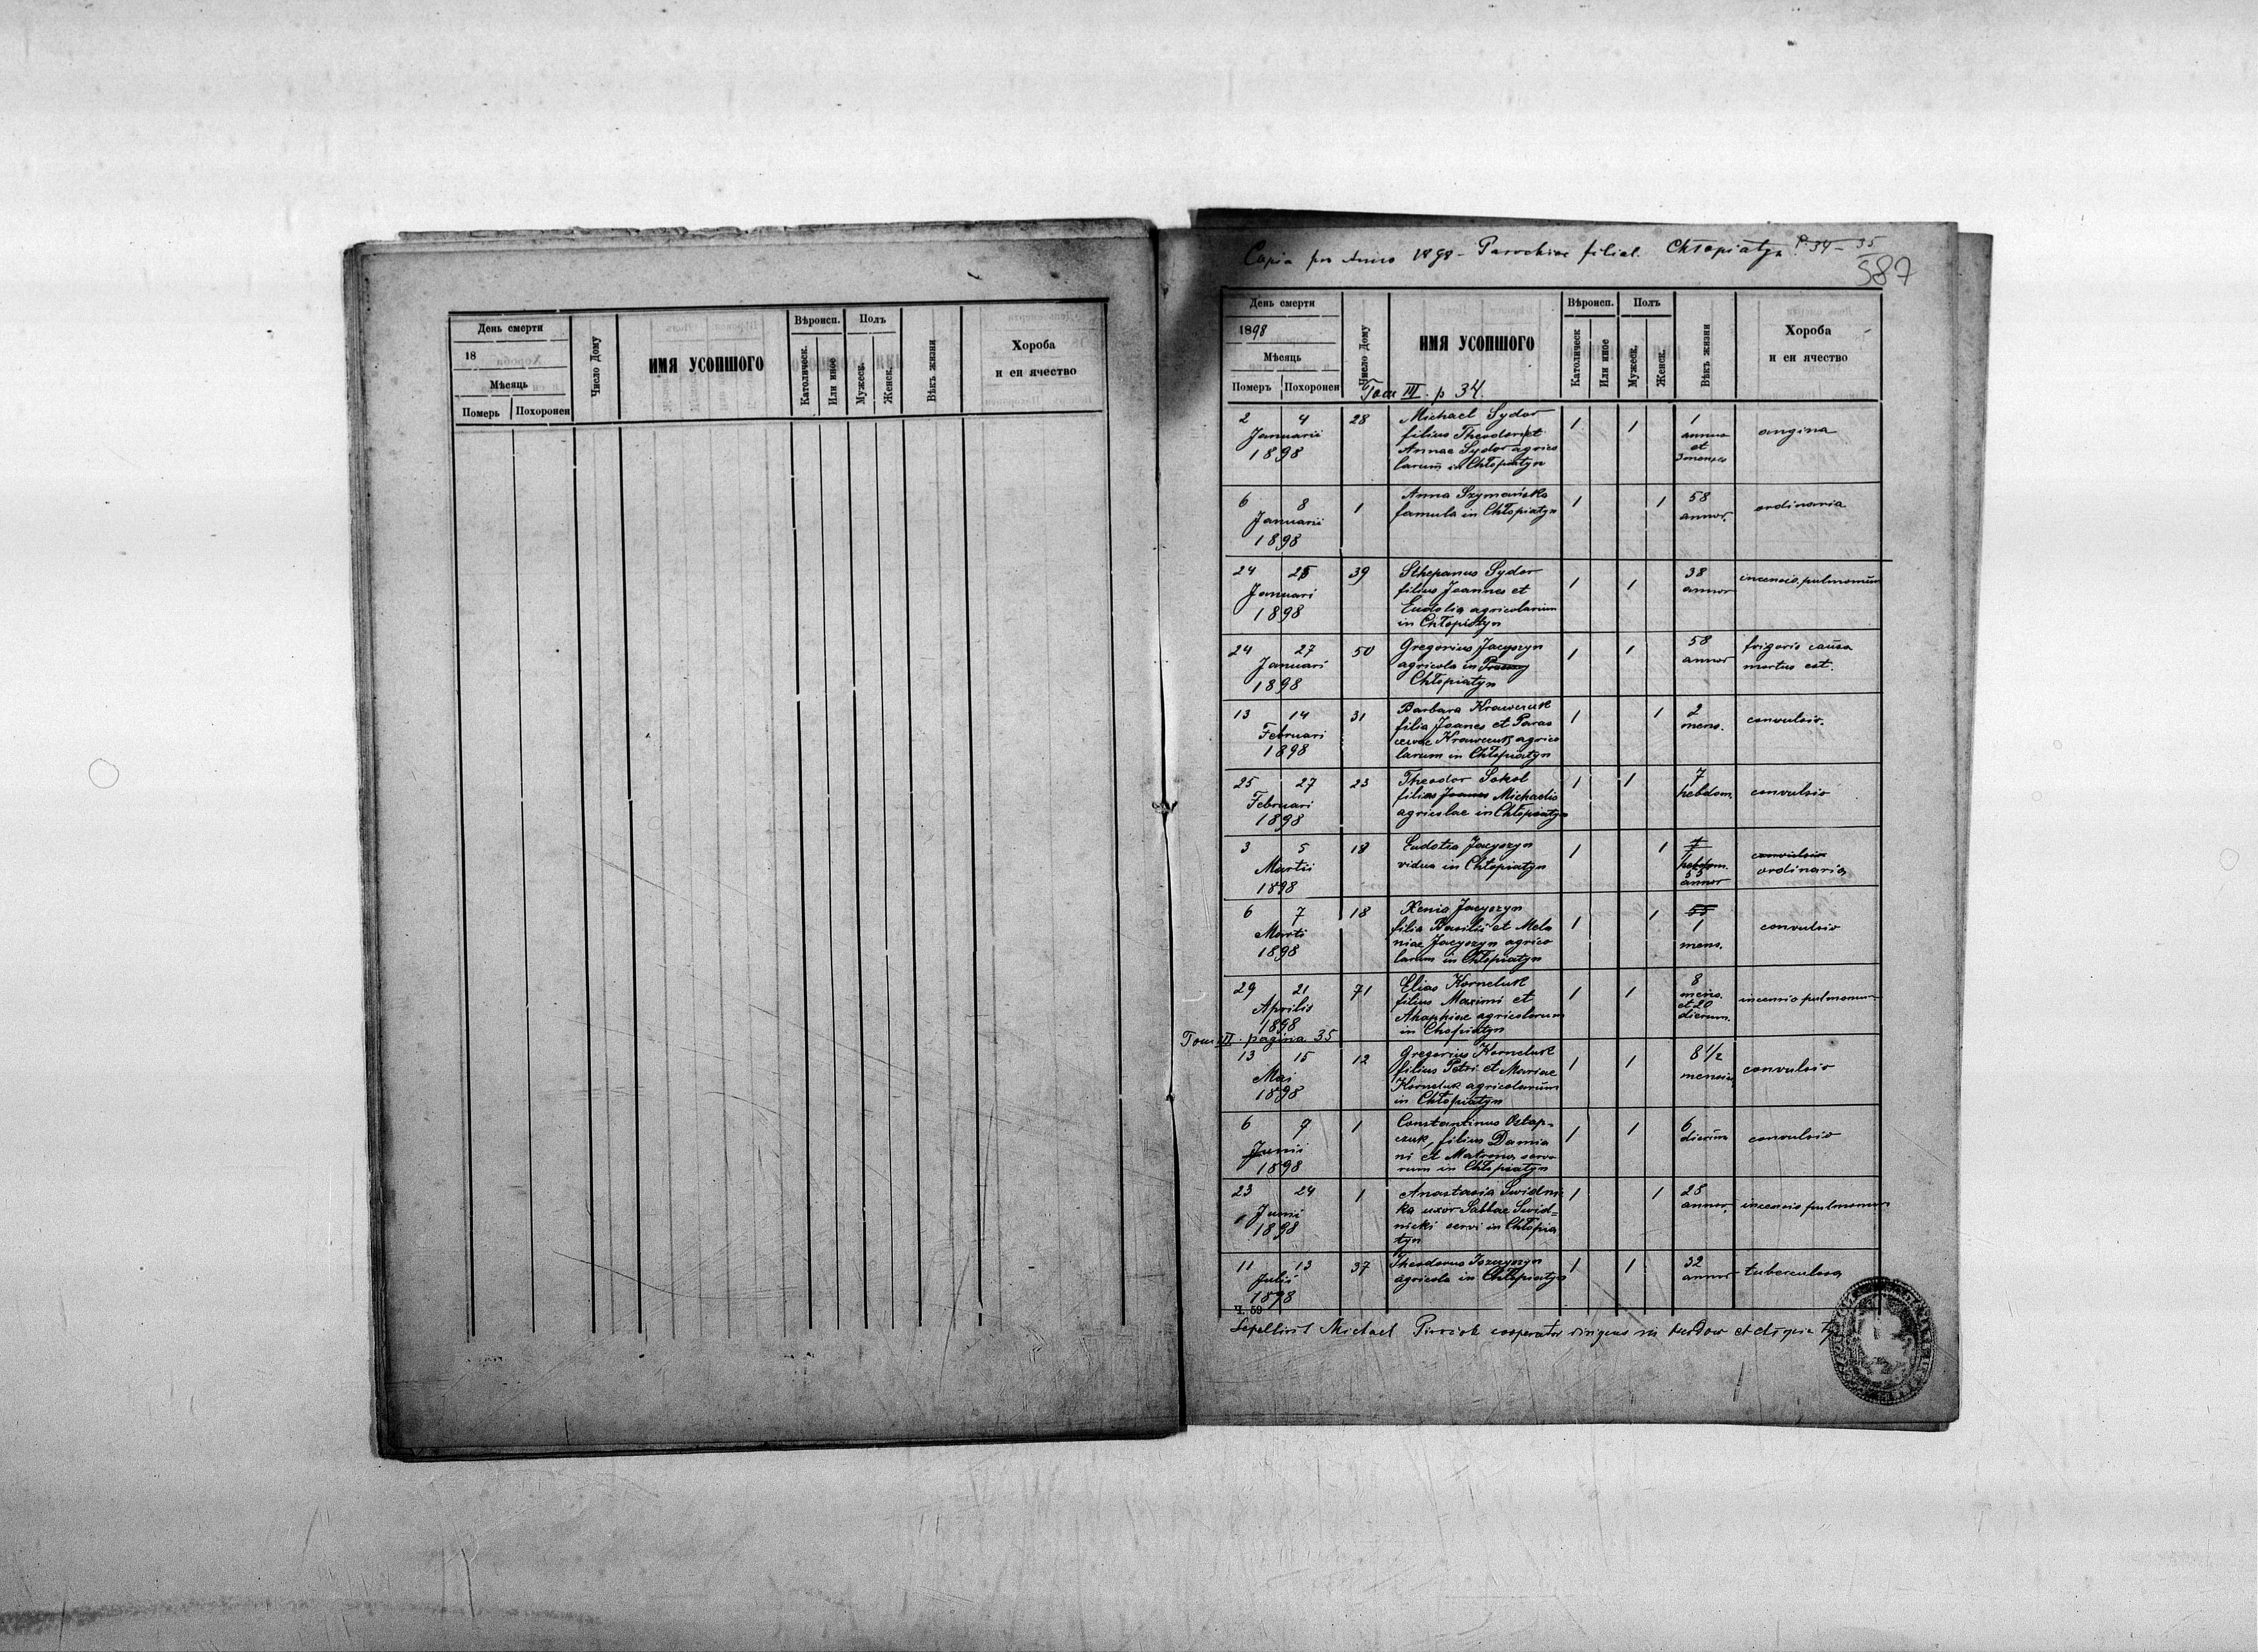 День смерти
18
Мѣсяць
Померь
Похоронен
Число Дому
ИМЯ УСОПШОГО
Вѣроисп.
Католическ.
Или иное
Полъ
Мужеск.
Женск.
Вѣкъ жизни
Хороба
и еи ячество
Copia pro Anno 1898 - Parochiae filial. Chłopiatyn P. 34-35
587
День смерти
1898
Мѣсяць
Померъ
Похоронен
Число Дому
ИМЯ УСОПШОГО
Вѣроисп.
Католическ
Или иное
Полъ
Мужеск.
Женск.
Вѣкъ жизни
Хороба
и еи ячество
Tom III. p 34.
2 4 28 Michael Sydor 1 1 1
Januarii filius Theodori et annus angina
1898 Annae Sydor agrico et
larum in Chłopiatyn 3 menses
6 8 1 Anna Szymańska 1 1 58 ordinaria
Januarii famula in Chłopiatyn annor.
1898
24 25 39 Sthepanus Sydor 1 1 38 incensio pulmonum
Januari filius Joannes et annor
1898 Eudotia agricolarum
in Chłopiatyn
24 27 50 Gregorius Jacyszyn 1 1 58 frigoris causa
Januari agricola in annor mortus est.
1898 Chłopiatyn
13 14 31 Barbara Krawczuk 1 1 2 convulsio.
Februari filia Joanes et Paras mens.
1898 cewae Krawczuk agrico
larum in Chłopiatyn
25 27 23 Theodor Sokol 1 1 7 convulsio
Februari filius Joanes Michaelis hebdom.
1898 agricolae in Chłopiatyn
3 5 18 Eudotia Jacyszyn 1 1 7 convulsio
Martii vidua in Chłopiatyn hebdom. ordinaria
1898 55
annor
6 7 18 Xenia Jacyszyn 1 1 55
Marti filia Basilii et Mela 1 convulsio
1898 niae Jacyszyn agrico mens.
larum in Chłopiatyn
29 21 71 Elias Korneluk 1 1 8
Aprilis filius Maximi et mens. incensio pulmonum
1898 Ahaphiae agricolarum et 20
in Chopiatyn dierum.
Tom III. pagina 35
13 15 12 Gregorius Korneluk 1 1 8 1/2 convulsio
Mai filius Petri et Mariae mensium
1898 Korneluk agricolarum
in Chłopiatyn
6 7 1 Constantinus Ostap- 1 1 6 convulsio
Junii czuk, filius Damia dierum
1898 ni et Matrona servo
rum in Chłopiatyn
23 24 1 Anastasia Swidni 1 1 28 incensio pulmonum
Junii ka uxor Sabbae Swid= annor.
1898 nicki servi in Chłopia
tyn
11 13 37 Theodorus 1 1 32 tuberculosa
Julii agricola in Chłopiatyn annor
1898
Ч. 59
Sepellivit Michael cooperator dirigens in et